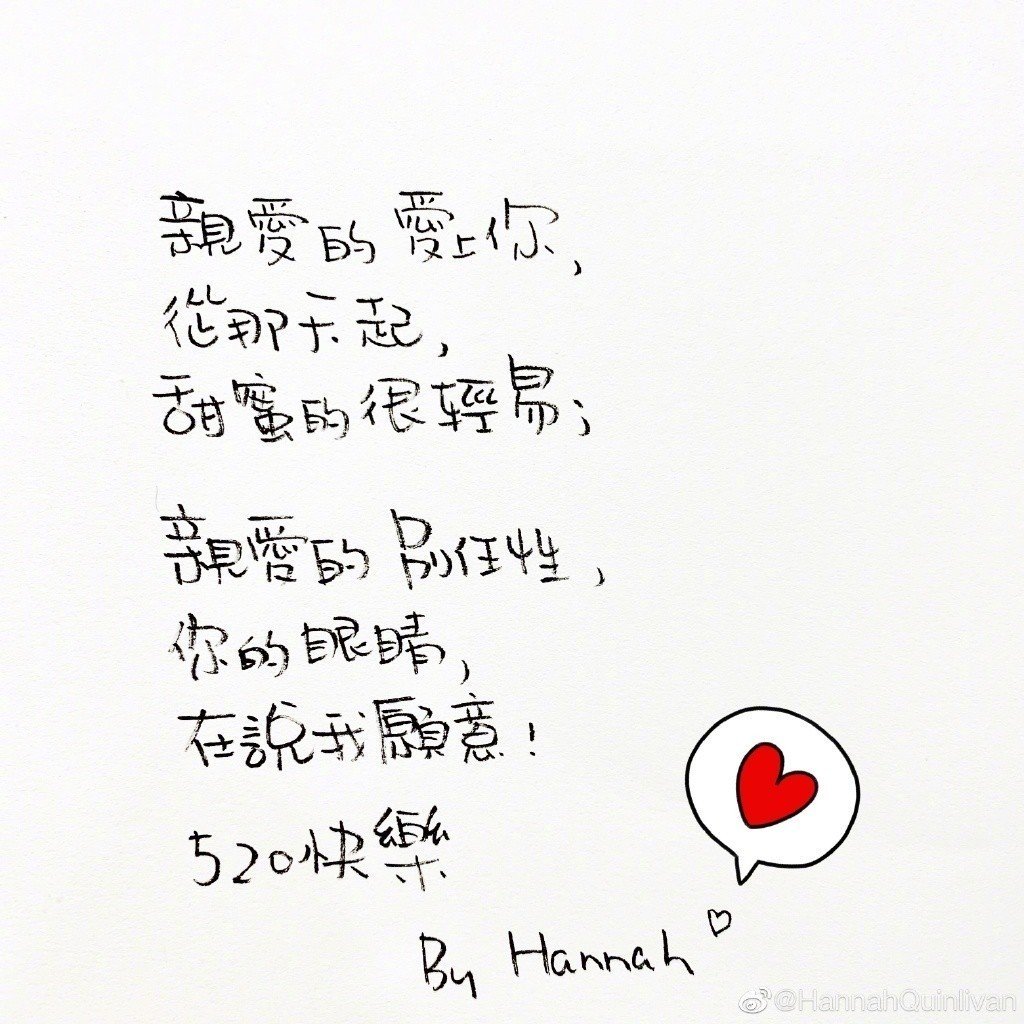 親愛的 愛上你,
從那天起,
甜蜜的很輕易;
親愛的 別任性,
你的眼睛,
在說我願意!
520快樂
By Hannah
@HannahQuinlivan